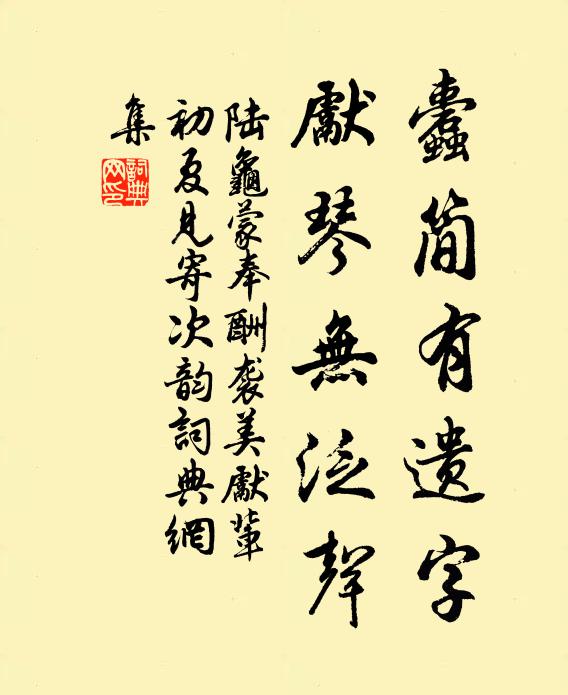 蠹簡有遺字
獻琴無泛聲
陆龜蒙奉酬袭美獻華
初夏見寄次韵詞典網
集
詞典網印